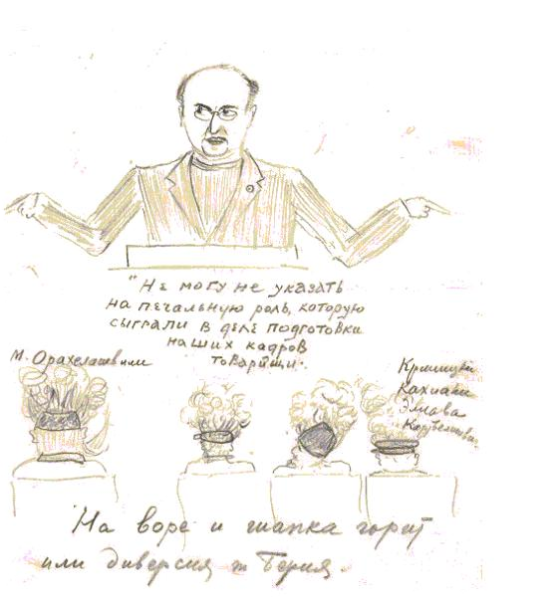 "Не могу не указать
на печальную роль, которую
сыграли в деле подготовки
наших кадров
товарищи:
М. Орахелашвили
Кахиани
Элиава
На воре и шапка горит
или диверсия т. Берия.